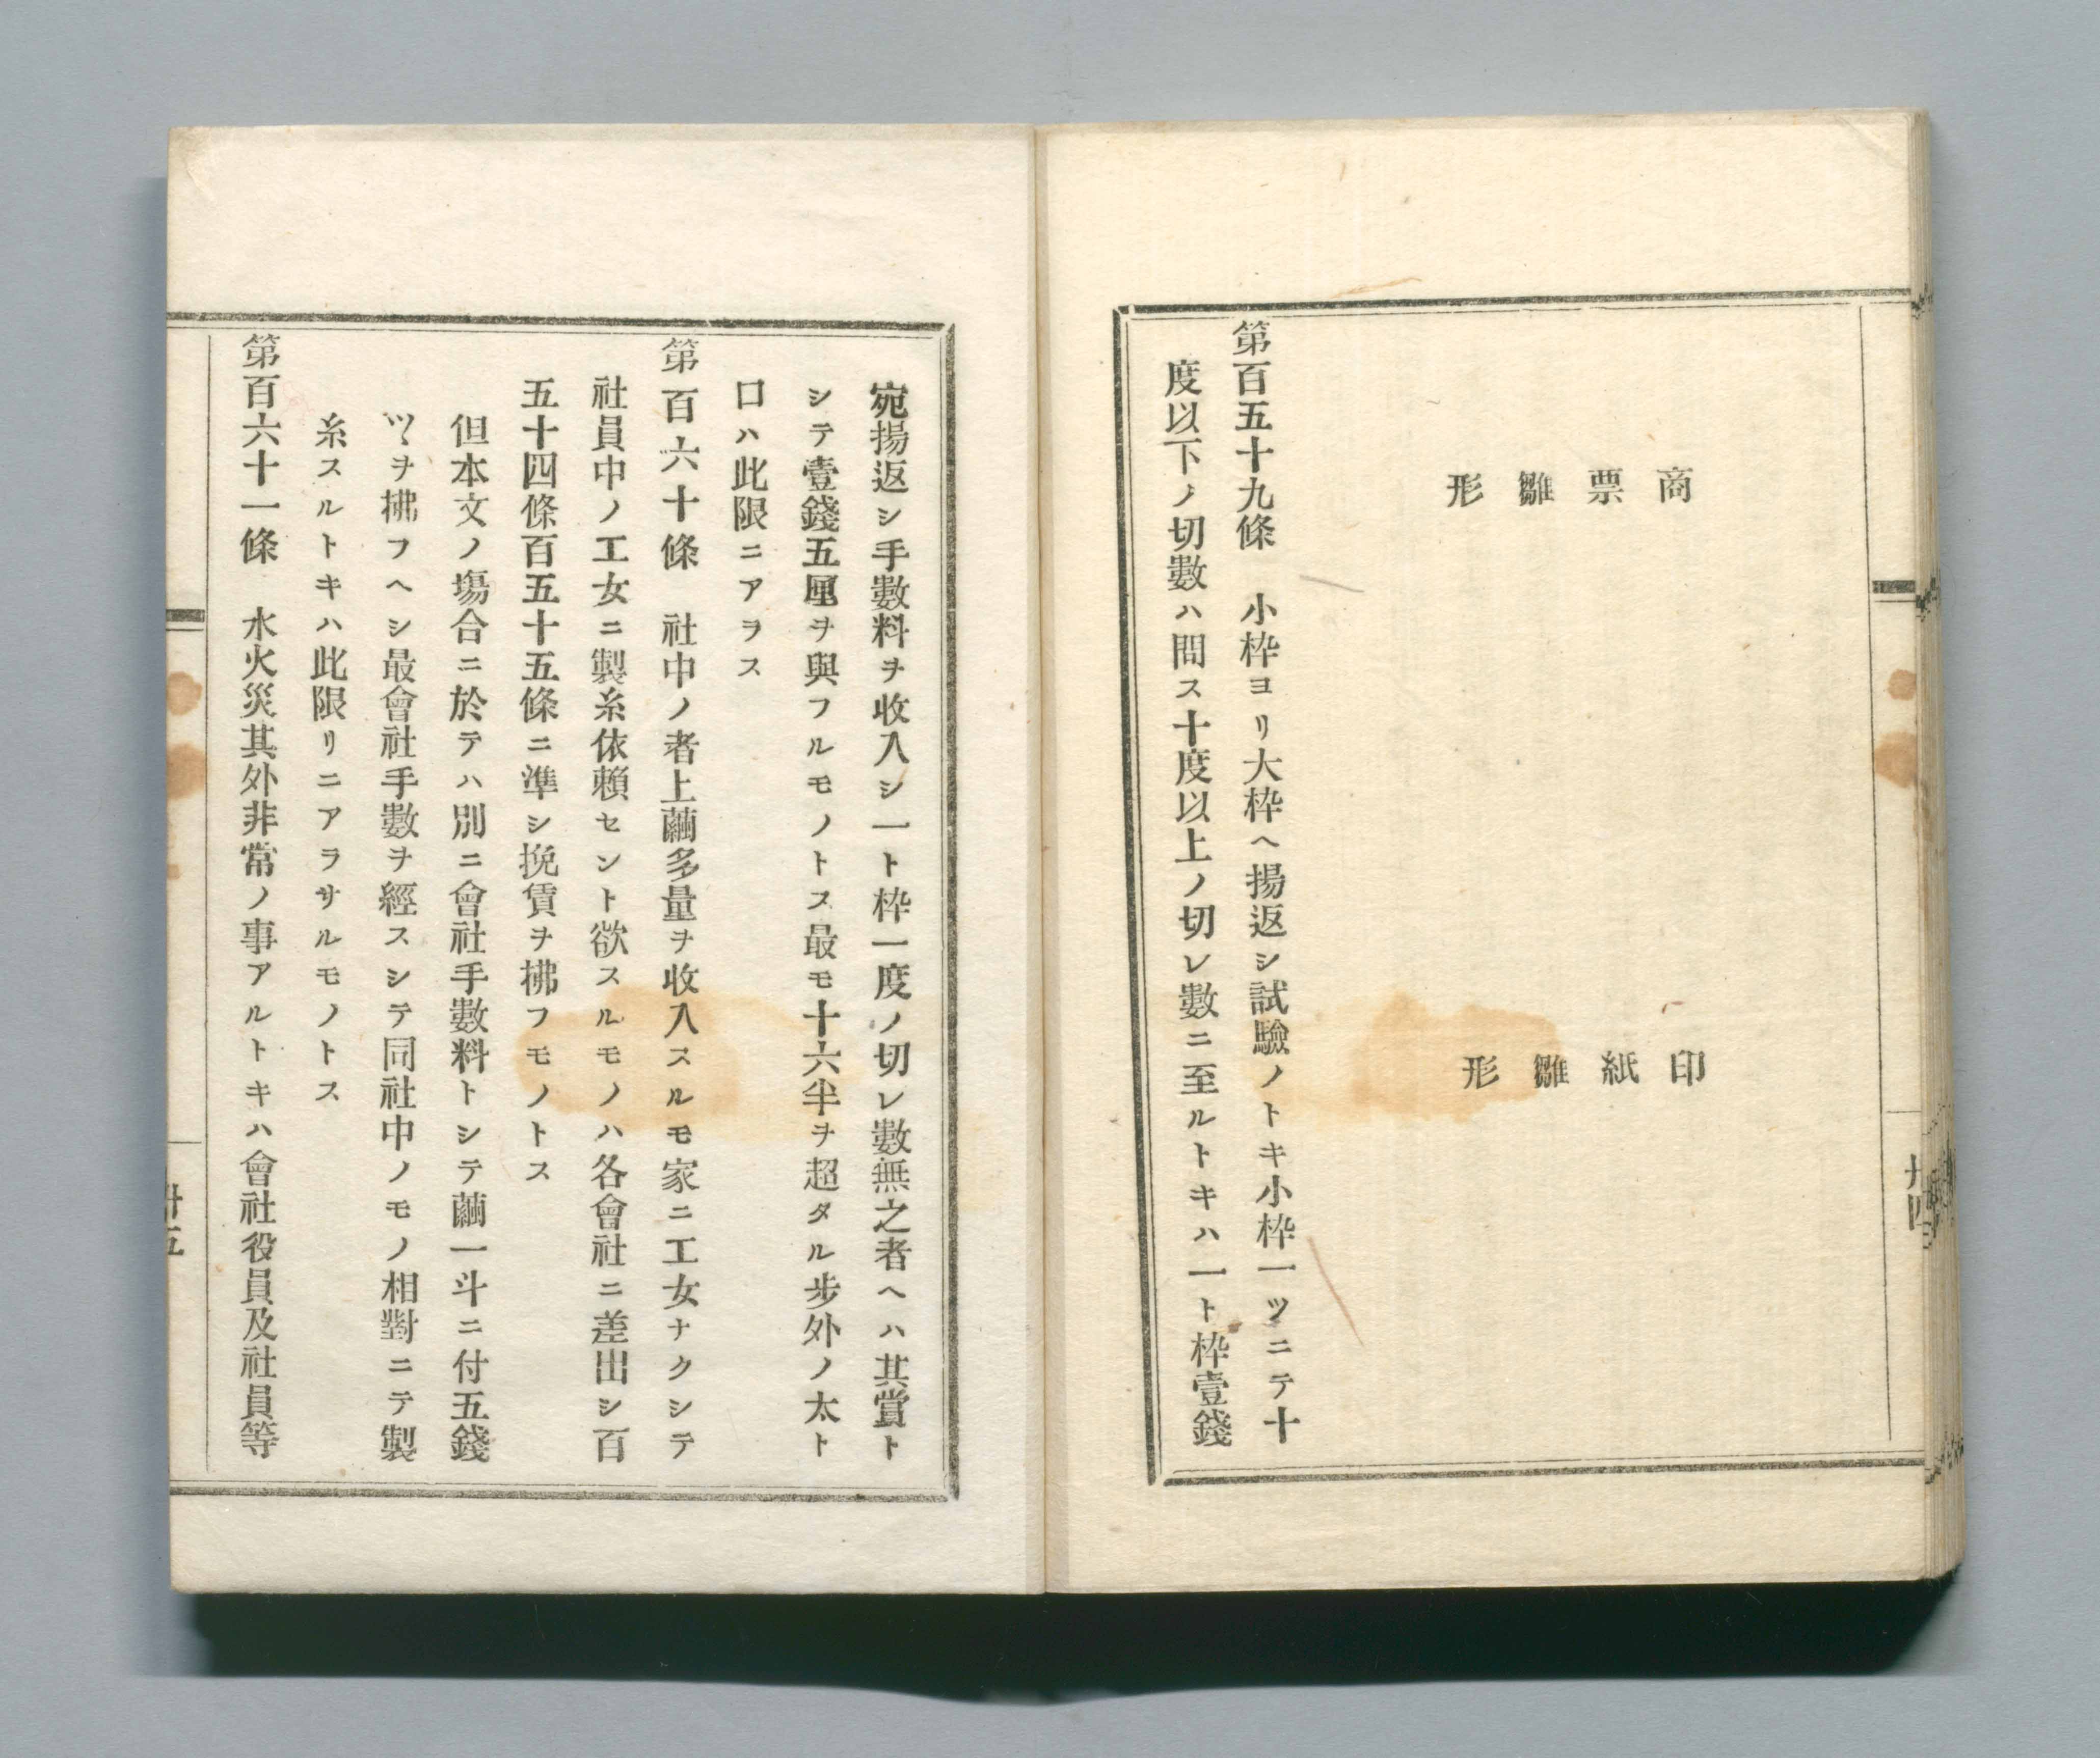 商票雛形
印紙雛形
第百五十九條　小枠ヨリ大枠ヘ揚返シ試驗ノトキ小枠一ツニテ十
度以下ノ切數ハ問ス十度以上ノ切レ數ニ至ルトキハ一ト枠壹錢
宛揚返シ手數料ヲ收入シ一ト枠一度ノ切レ數無之者ヘハ其賞ト
シテ壹錢五厘ヲ與フルモノトス最モ十六半ヲ超タル歩外ノ太ト
口ハ此限ニアラス
第百六十條　社中ノ者上繭多量ヲ收入スルモ家ニ工女ナクシテ
社員中ノ工女ニ製糸依賴セント欲スルモノハ各會社ニ差出シ百
五十四條百五十五條ニ準シ挽賃ヲ拂フモノトス
但本文ノ塲合ニ於テハ別ニ會社手數料トシテ繭一斗ニ付五錢
ツヽヲ拂フヘシ最會社手數ヲ經スシテ同社中ノモノ相對ニテ製
糸スルトキハ此限リニアラサルモノトス
第百六十一條　水火災其外非常ノ事アルトキハ會社役員及社員等
廿四
廿五